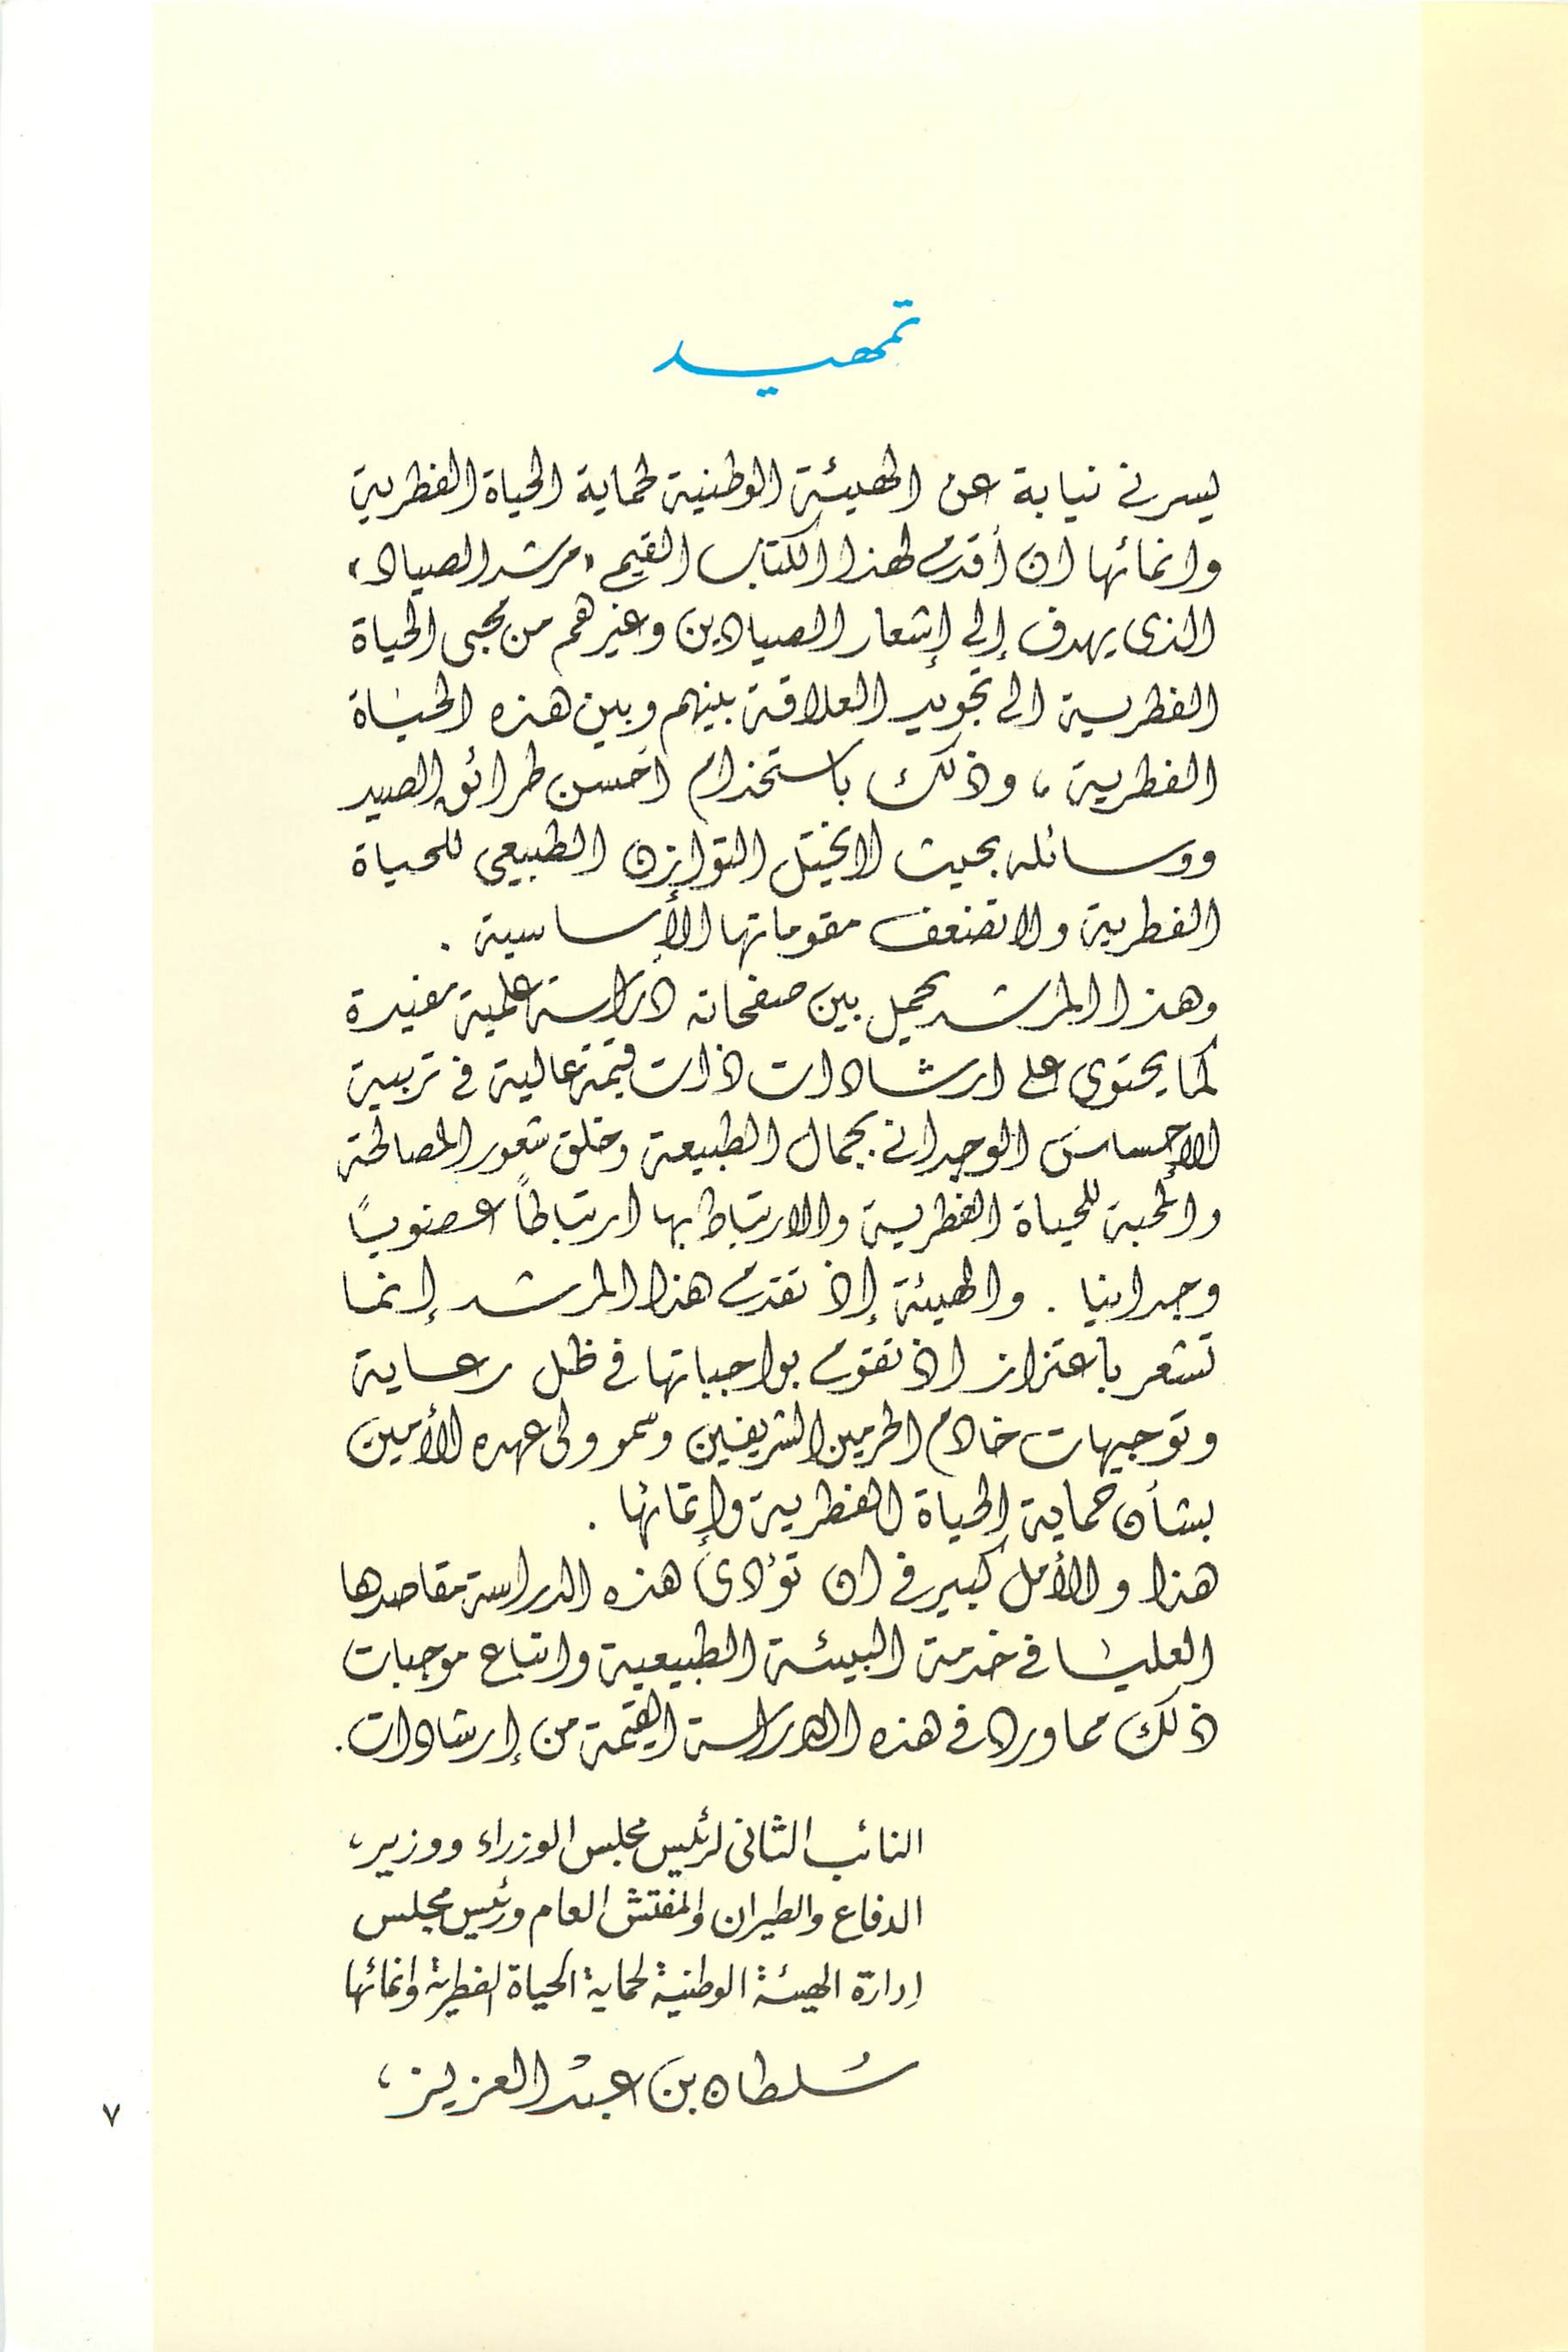 تمهيد
يسرني نيابة عن الهيئة الوطنية لحماية الحياة الفطرية
وانمائها ان أقدم لهذا الكتاب القيم «مرشد الصياد»
الذى يهدف إلى إشعار الصيادين وغيرهم من محبى الحياة
الفطرية الى تجويد العلاقة بينهم وبين هذه الحياة
الفطرية، وذلك باستخدام أحسن طرائق الصيد
ووسائله بحيث لا يختل التوازن الطبيعى للحياة
الفطرية ولا تضعف مقوماتها الأساسية .
وهذا المرشد يحمل بين صفحاته دراسة علمية مفيدة
كما يحتوى على ارشادات ذات قيمة عالية فى تربية
الإحساس الوجدانى بجمال الطبيعة وخلق شعور المصالحة
والمحبة للحياة الفطرية والارتباط بها ارتباطاً عضوياً
وجدانيا . والهيئة إذ تقدم هذا المرشد إنما
تشعر باعتزاز اذ تقوم بواجباتها فى ظل رعاية
وتوجيهات خادم الحرمين الشريفين وسمو ولى عهده الأمين
بشأن حماية الحياة الفطرية وإنمائها .
هذا والأمل كبير فى ان تؤدى هذه الدراسة مقاصدها
العليا فى خدمة البيئة الطبيعية واتباع موجبات
ذلك مما ورد فى هذه الدراسة القيمة من إرشادات.
النائب الثانى لرئيس مجلس الوزراء ووزير،
الدفاع والطيران والمفتش العام ورئيس مجلس
إدارة الهيئة الوطنية لحماية الحياة الفطرية وانمائها
سلطان بن عبد العزيز،
٧